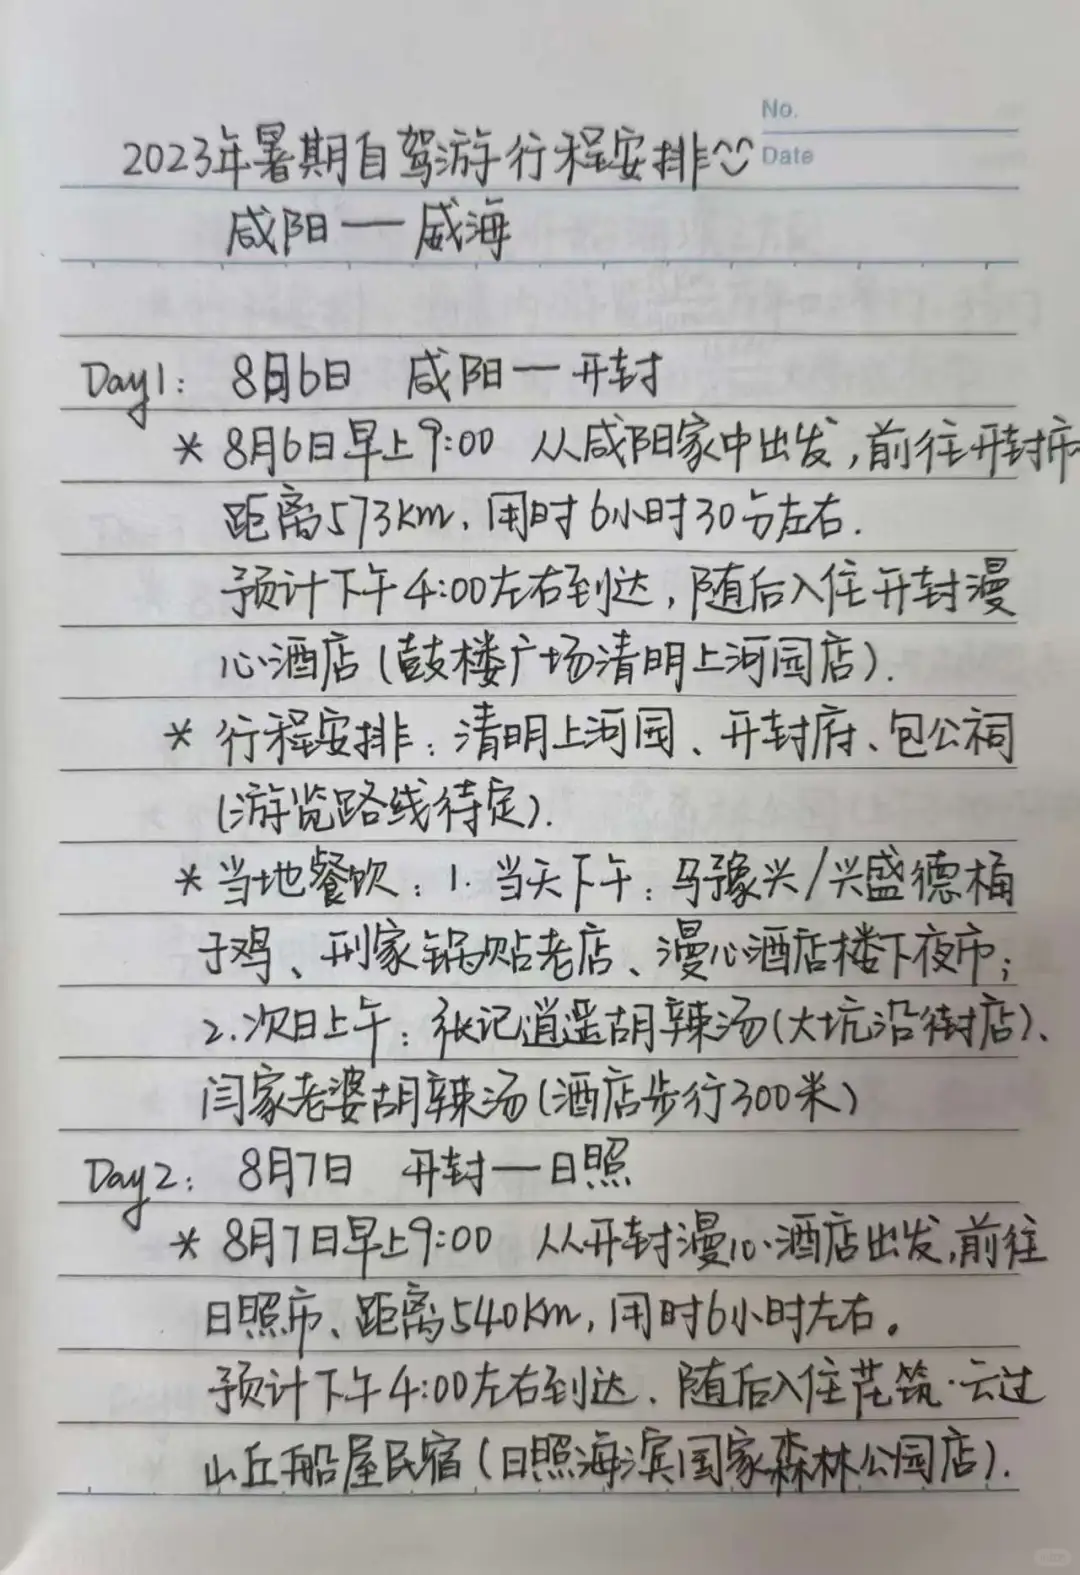 No.
Date
2023年暑期自驾游行程安排
咸阳——威海
Day1: 8月6日 咸阳——开封
* 8月6日早上9:00 从咸阳家中出发,前往开封市
距离573km,用时6小时30分左右.
预计下午4:00左右到达,随后入住开封漫
心酒店(鼓楼广场清明上河园店).
* 行程安排:清明上河园、开封府、包公祠
(游览路线待定).
* 当地餐饮:1.当天下午:马豫兴/兴盛德桶
子鸡、邢家锅贴老店、漫心酒店楼下夜市;
2.次日上午:张记逍遥胡辣汤(大坑沿街店)、
闫家老婆胡辣汤(酒店步行300米)
Day2: 8月7日 开封——日照
* 8月7日早上9:00 从开封漫心酒店出发,前往
日照市、距离540km,用时6小时左右。
预计下午4:00左右到达.随后入住花筑·云过
山丘船屋民宿(日照海滨国家森林公园店).